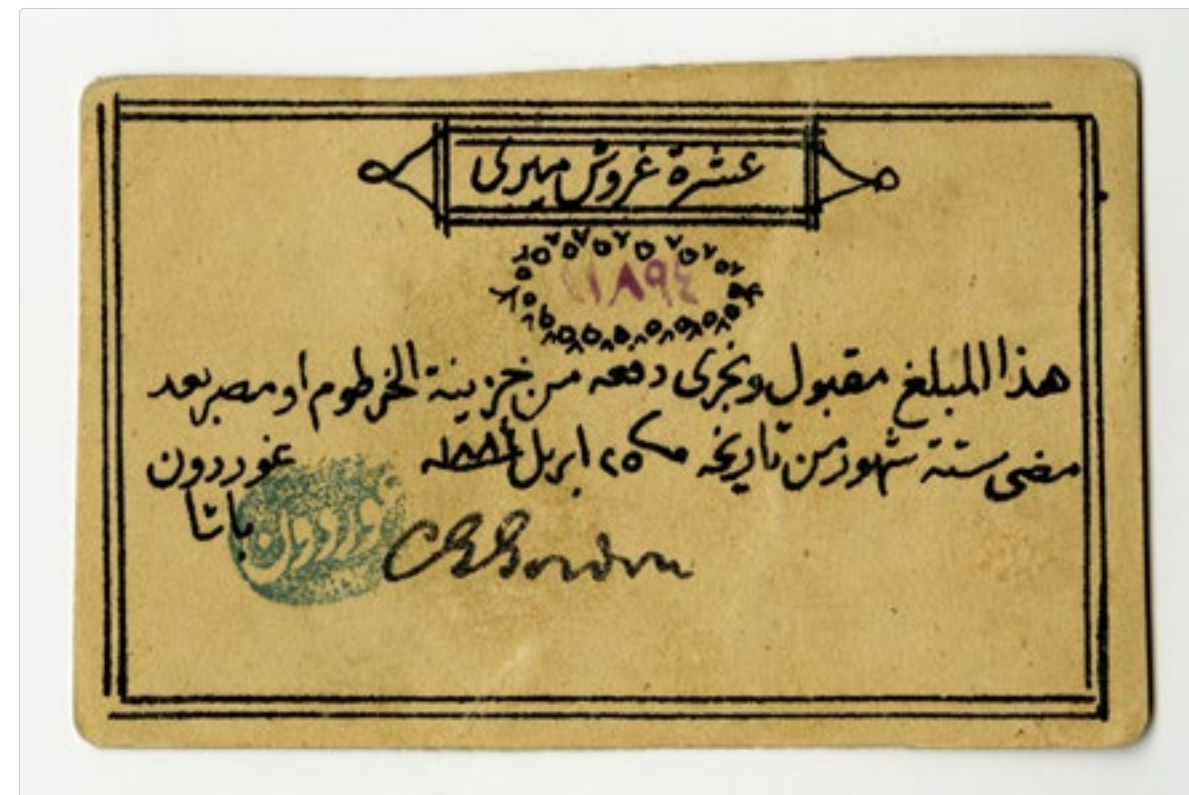 عشرة غروش ميرى
١٨٩٤
هذا المبلغ مقبول ويجرى دفعه من خزينة الخرطوم او مصر بعد
مضى ستة شهور من تاريخه ٢٥ ابريل ١٨٨٤ غوردون
باشا
C G Gordon